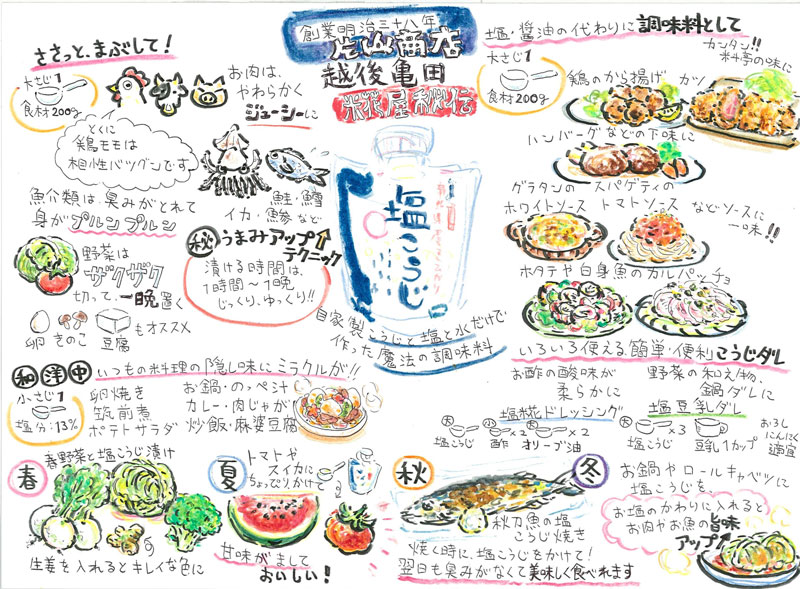 創業明治三十八年
片山商店
越後亀田
糀屋秘伝
塩こうじ
自家製こうじと塩と水だけで
作った魔法の調味料
ささっと、まぶして！
大さじ1
食材200g
お肉は、
やわらかく
ジューシーに
とくに
鶏モモは
相性バツグンです
魚介類は臭みがとれて
身がプルンプルン
鮭・鱈
イカ・魚参など
野菜は
ザクザク
切って、一晩置く
卵 きのこ 豆腐 もオススメ
秘 うまみアップ
テクニック
漬ける時間は、
1時間～1晩
じっくり、ゆっくり!!
塩・醤油の代わりに調味料として
カンタン!!
料亭の味に
大さじ1
食材200g
鶏のから揚げ カツ
ハンバーグなどの下味に
グラタンの
ホワイトソース
スパゲティの
トマトソース
などソースに
一味!!
ホタテや白身魚のカルパッチョ
いろいろ使える簡単・便利こうじダレ
お酢の酸味が
柔らかに
塩糀ドレッシング
大 塩こうじ
小×2 酢
大×2 オリーブ油
野菜の和え物、
鍋ダレに
塩豆乳ダレ
大×3 塩こうじ
豆乳1カップ
おろし
にんにく
適宜
和洋中 いつもの料理の隠し味にミラクルが!!
小さじ1
塩分：13%
卵焼き
筑前煮
ポテトサラダ
お鍋・のっぺ汁
カレー・肉じゃが
炒飯・麻婆豆腐
春
春野菜と塩こうじ漬け
生姜を入れるとキレイな色に
夏
トマトや
スイカに
ちょっぴりかけて
甘味がまして
おいしい！
秋
秋刀魚の塩
こうじ焼き
焼く時に、塩こうじをかけて！
翌日も臭みがなくて美味しく食べれます
冬
お鍋やロールキャベツに
塩こうじを、
お塩のかわりに入れると
お肉やお魚の旨味
アップ